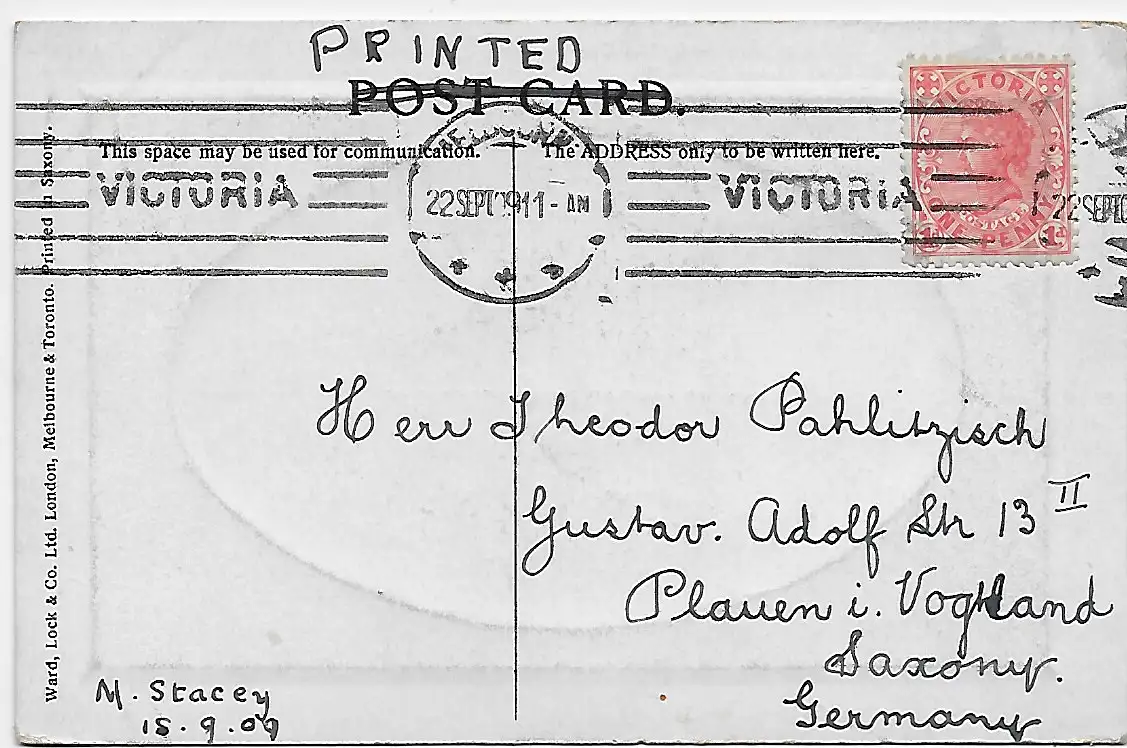 PRINTED
POST CARD.
This space may be used for communication.
The ADDRESS only to be written here.
VICTORIA
22 SEPT 09 11 - AM
VICTORIA
VICTORIA
ONE PENNY
1d 1d
22 SEPT 0
Herr Theodor Pahlitzsch
Gustav. Adolf Str 13 II
Plauen i. Vogtland
Saxony.
Germany
M. Stacey
15.9.09
Ward, Lock & Co. Ltd. London, Melbourne & Toronto. Printed in Saxony.